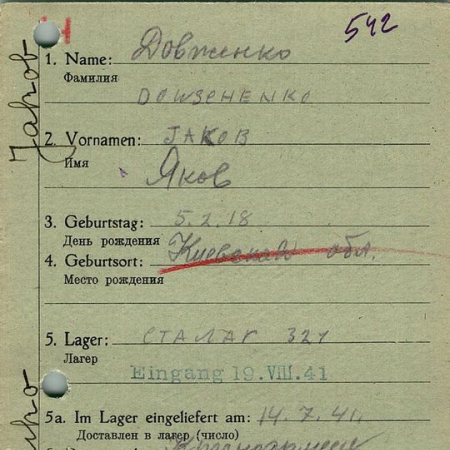 542
Jakob
1. Name: Довженко
Фамилия
DOWSCHENKO
2. Vornamen: JAKOB
Имя
Яков
3. Geburtstag: 5.2.18
День рождения
4. Geburtsort: Киевская обл.
Место рождения
5. Lager: СТАЛАГ 321
Лагер
Eingang 19.VIII.41
5a. Im Lager eingeliefert am: 14.7.41.
Доставлен в лагер (число)